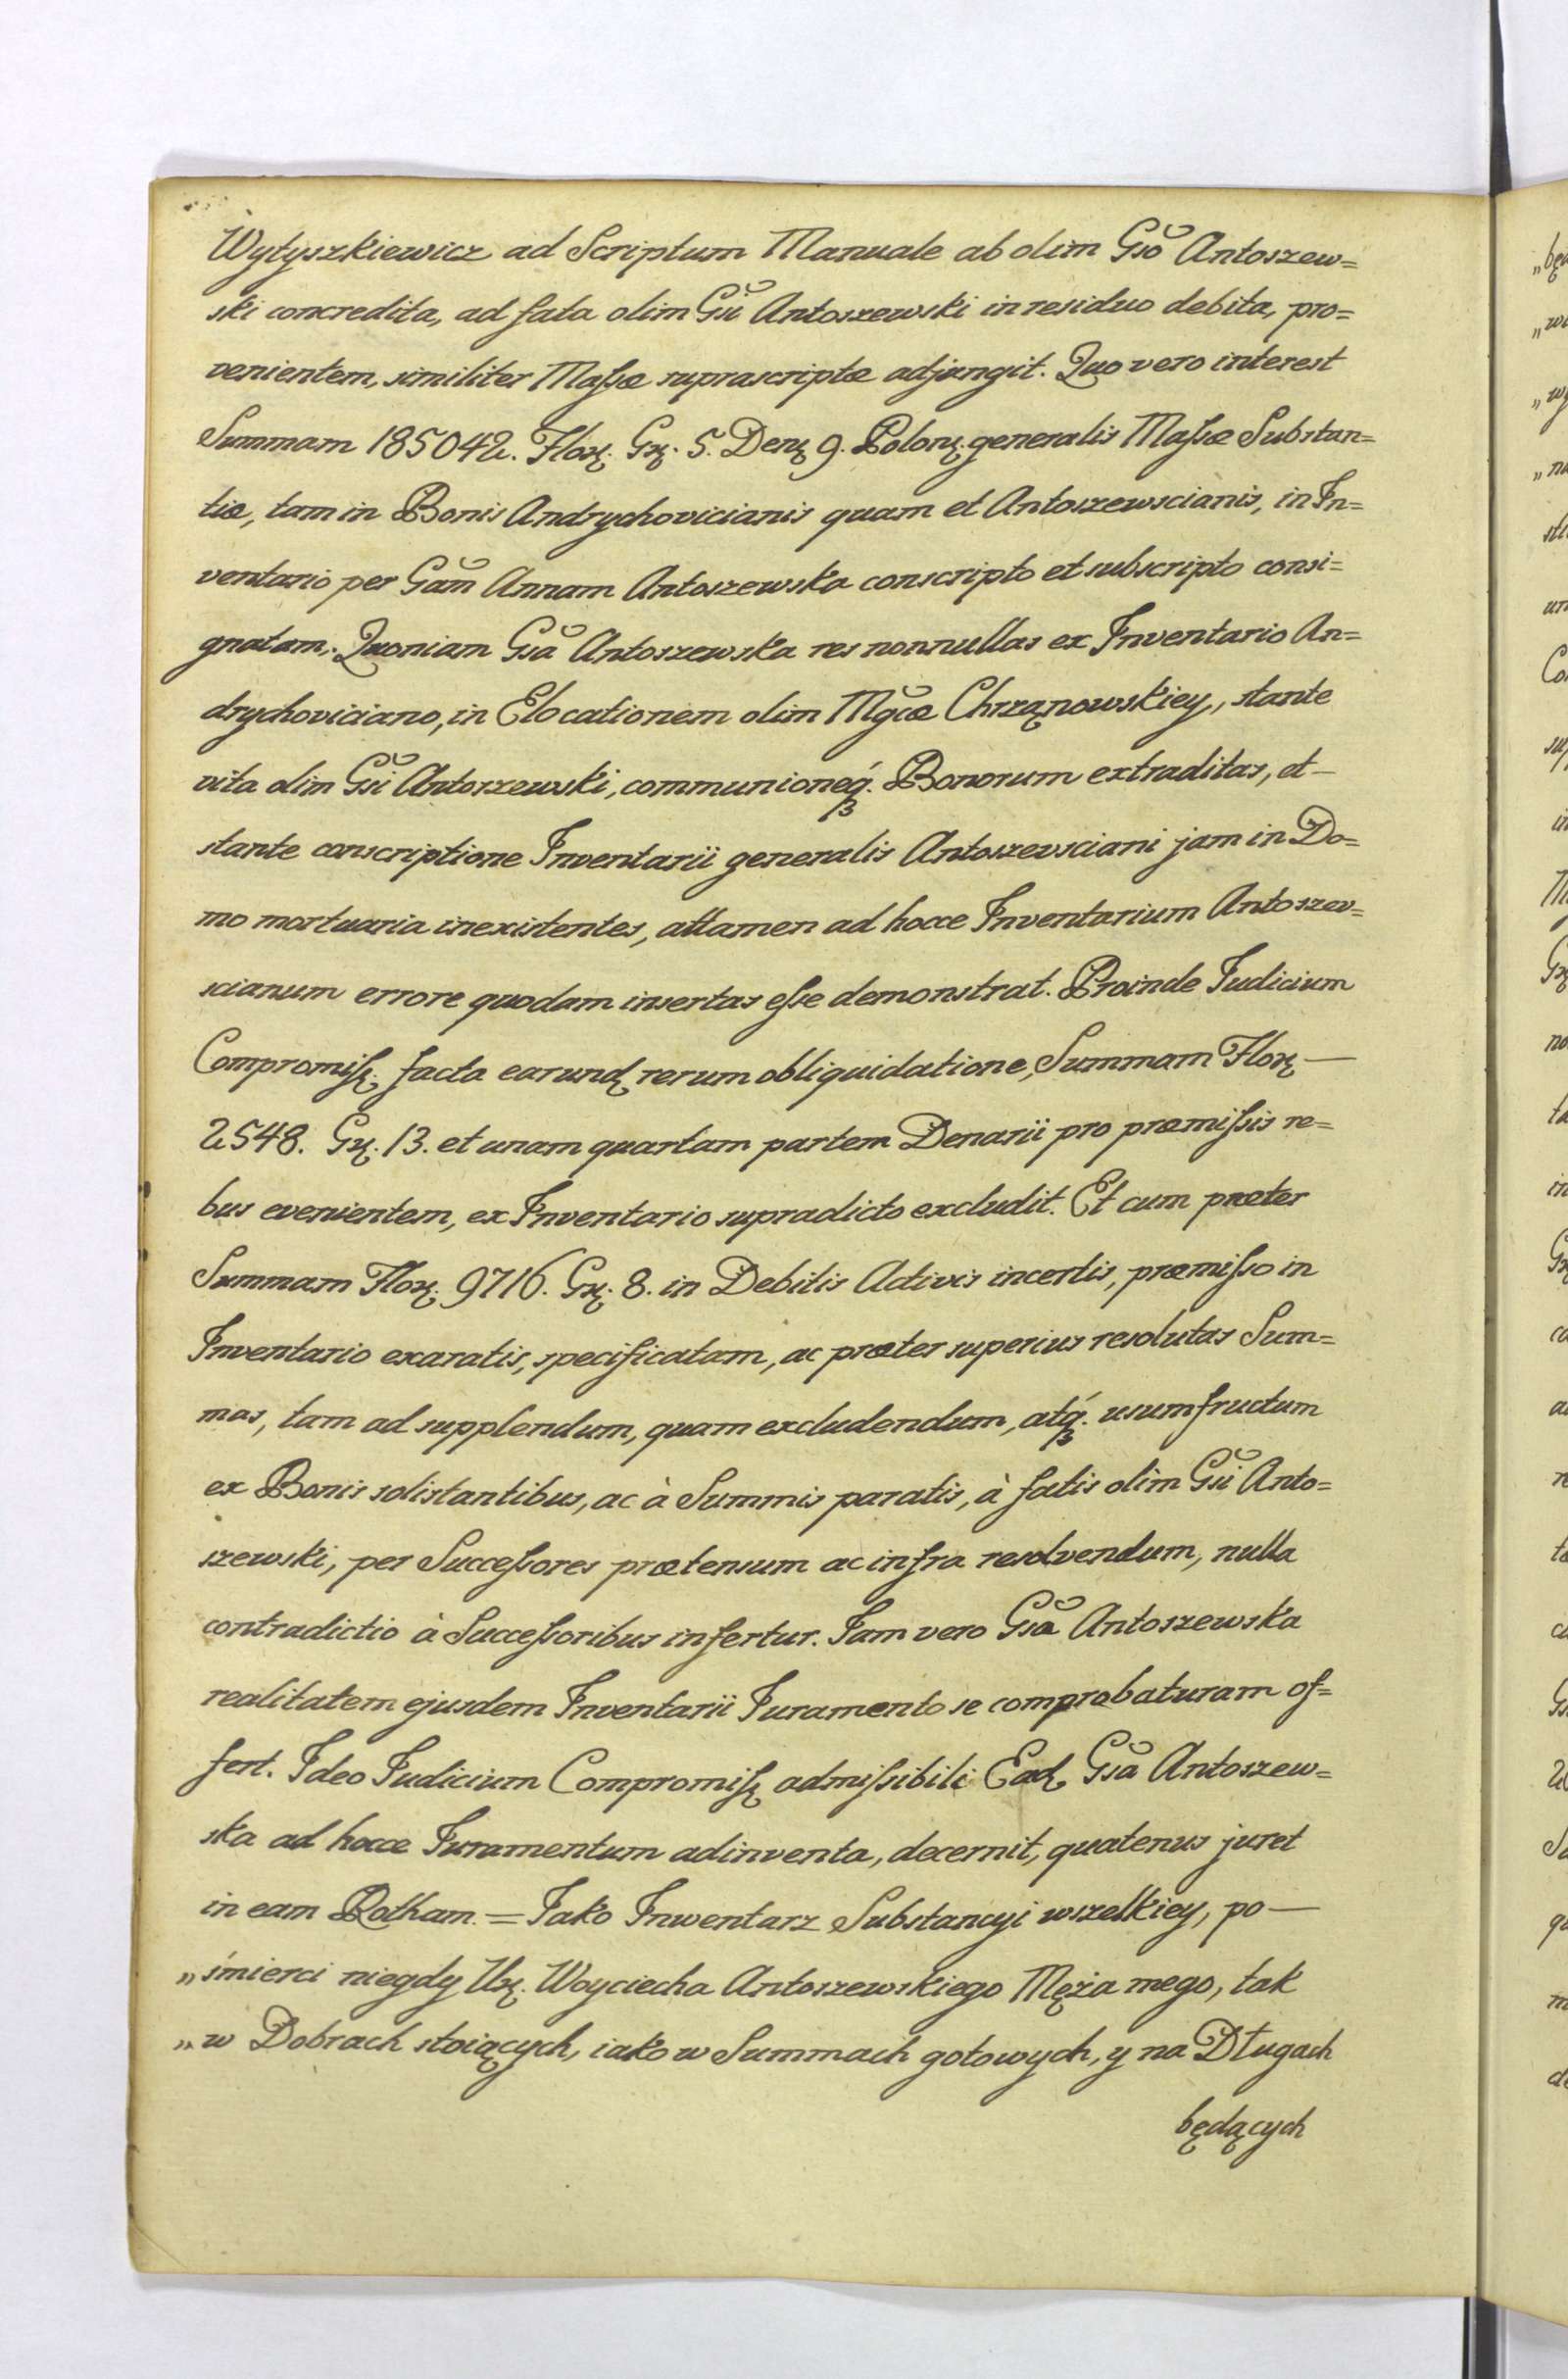 Wytyszkiewicz ad Scriptum Manuale ab olim Gso Antoszew=
ski concredita, ad fata olim Gsi Antoszewski in residuo debita, pro=
venientem, similiter Massæ suprascriptæ adjungit. Quo vero interest
Summam 185042. Flor. Gr. 5. Den. 9. Polon. generalis Massæ Substan=
tiæ, tam in Bonis Andrychovicianis quam et Antoszewscianis, in In=
ventario per Gam Annam Antoszewska conscripto et subscripto consi=
gnatam. Quoniam Gsa Antoszewska res nonnullas ex Inventario An=
drychoviciano, in Elocationem olim Mgcæ Chrząnowskiey, stante
vita olim Gsi Antoszewski, communioneq́. Bonorum extraditas, et —
stante conscriptione Inventarii generalis Antoszevsciani jam in Do=
mo mortuaria inexistentes, attamen ad hocce Inventarium Antoszev=
scianum errore quodam insertas esse demonstrat. Proinde Iudicium
Compromiss. facta earund. rerum obliquidatione, Summam Flor. —
2548. Gr. 13. et unam quartam partem Denarii pro præmissis re=
bus evenientem, ex Inventario supradicto excludit. Et cum præter
Summam Flor. 9716. Gr. 8. in Debitis Activis incertis, præmisso in
Inventario exaratis, specificatam, ac præter superius resolutas Sum=
mas, tam ad supplendum, quam excludendum, atq́. usumfructum
ex Bonis solistantibus, ac à Summis paratis, à fatis olim Gsi Anto=
szewski, per Successores prætensum ac infra resolvendum, nulla
contradictio à Successoribus infertur. Iam vero Gsa Antoszewska
realitatem ejusdem Inventarii Iuramento se comprobaturam of=
fert. Ideo Iudicium Compromiss. admissibili Ead. Gsa Antoszew=
ska ad hocce Iuramentum adinventa, decernit, quatenus juret
in eam Rotham. = Iako Inwentarz Substancyi wszelkiey, po —
„śmierci niegdy Ur. Woyciecha Antoszewskiego Męża mego, tak
„w Dobrach stoiących, iako w Summach gotowych, y na Długach
będących